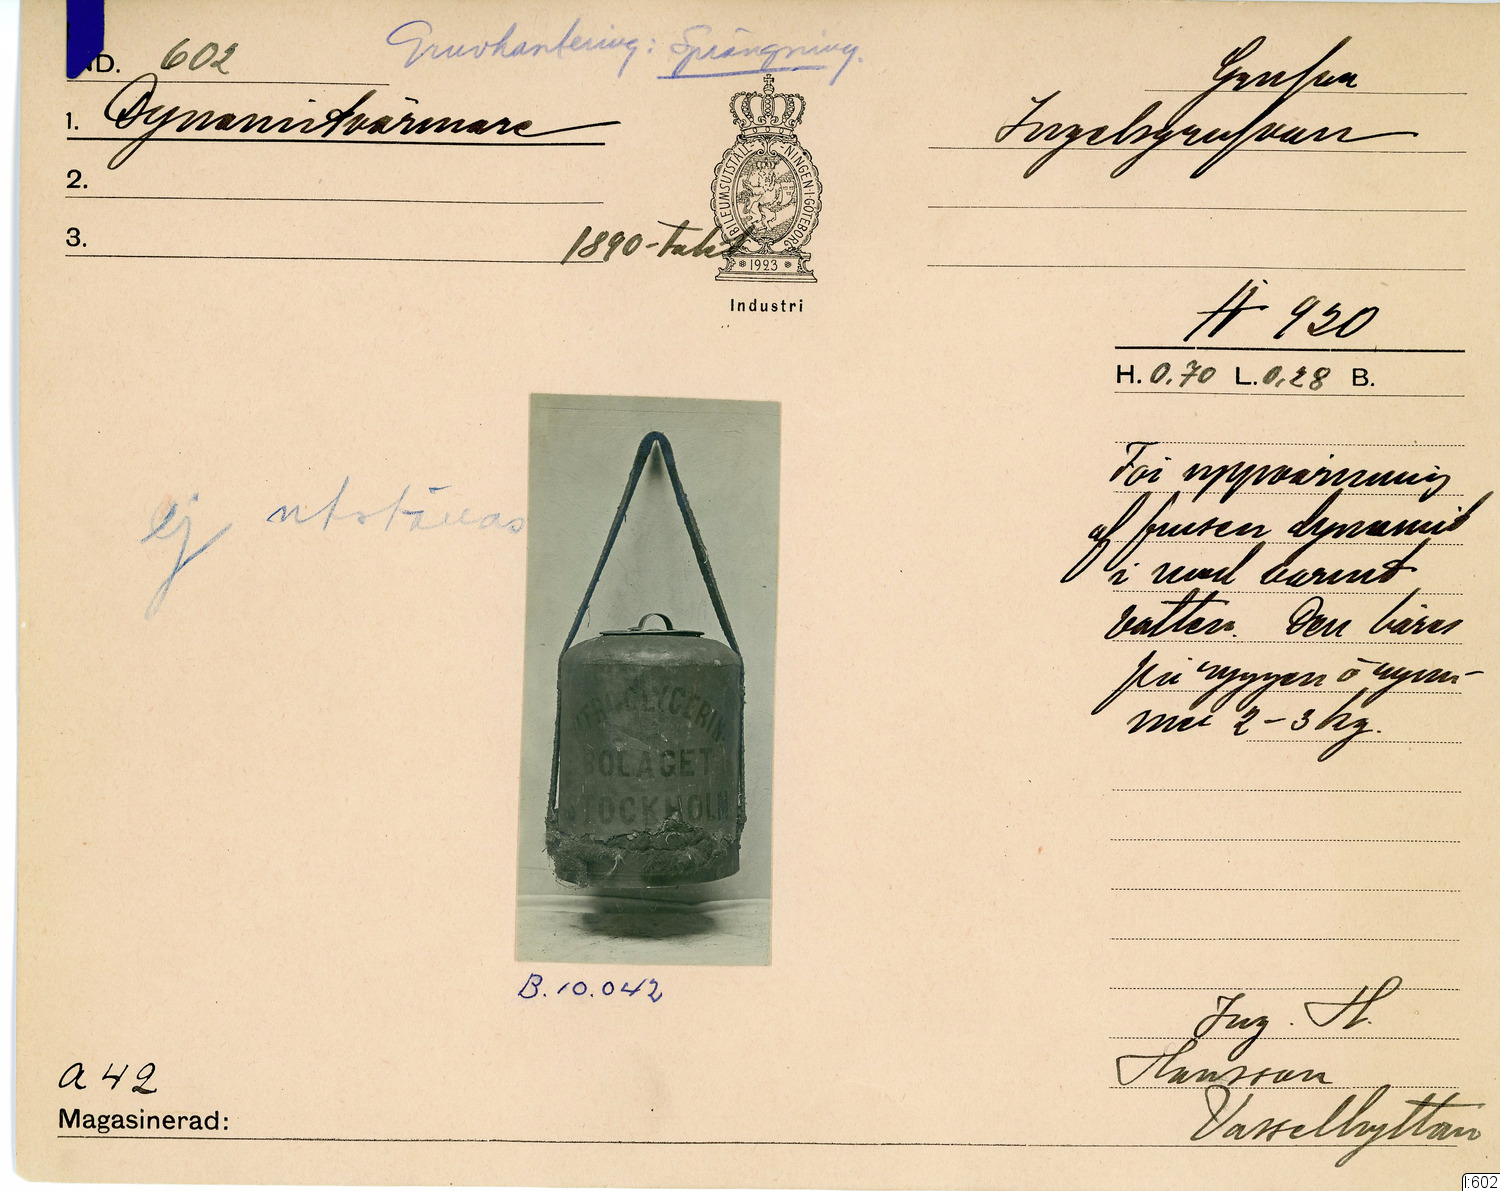 IND. 602
Gruvhantering: Sprängning.
1. Dynamitvärmare
2.
3.
1890-talet
JUBILEUMSUTSTÄLLNINGEN I GÖTEBORG
1923
Industri
Ingelsgrufvan
N 920
H. 0,70 L. 0,28 B.
För uppvärmning
af frusen dynamit
i med varmt
vatten. Den bäres
på ryggen o rym-
mer 2-3 kg.
ej utställas
NITROGLYCERIN-
BOLAGET
STOCKHOLM
B.10.042
Ing. H.
Hansson
Vasselhyttan
a 42
Magasinerad:
I:602